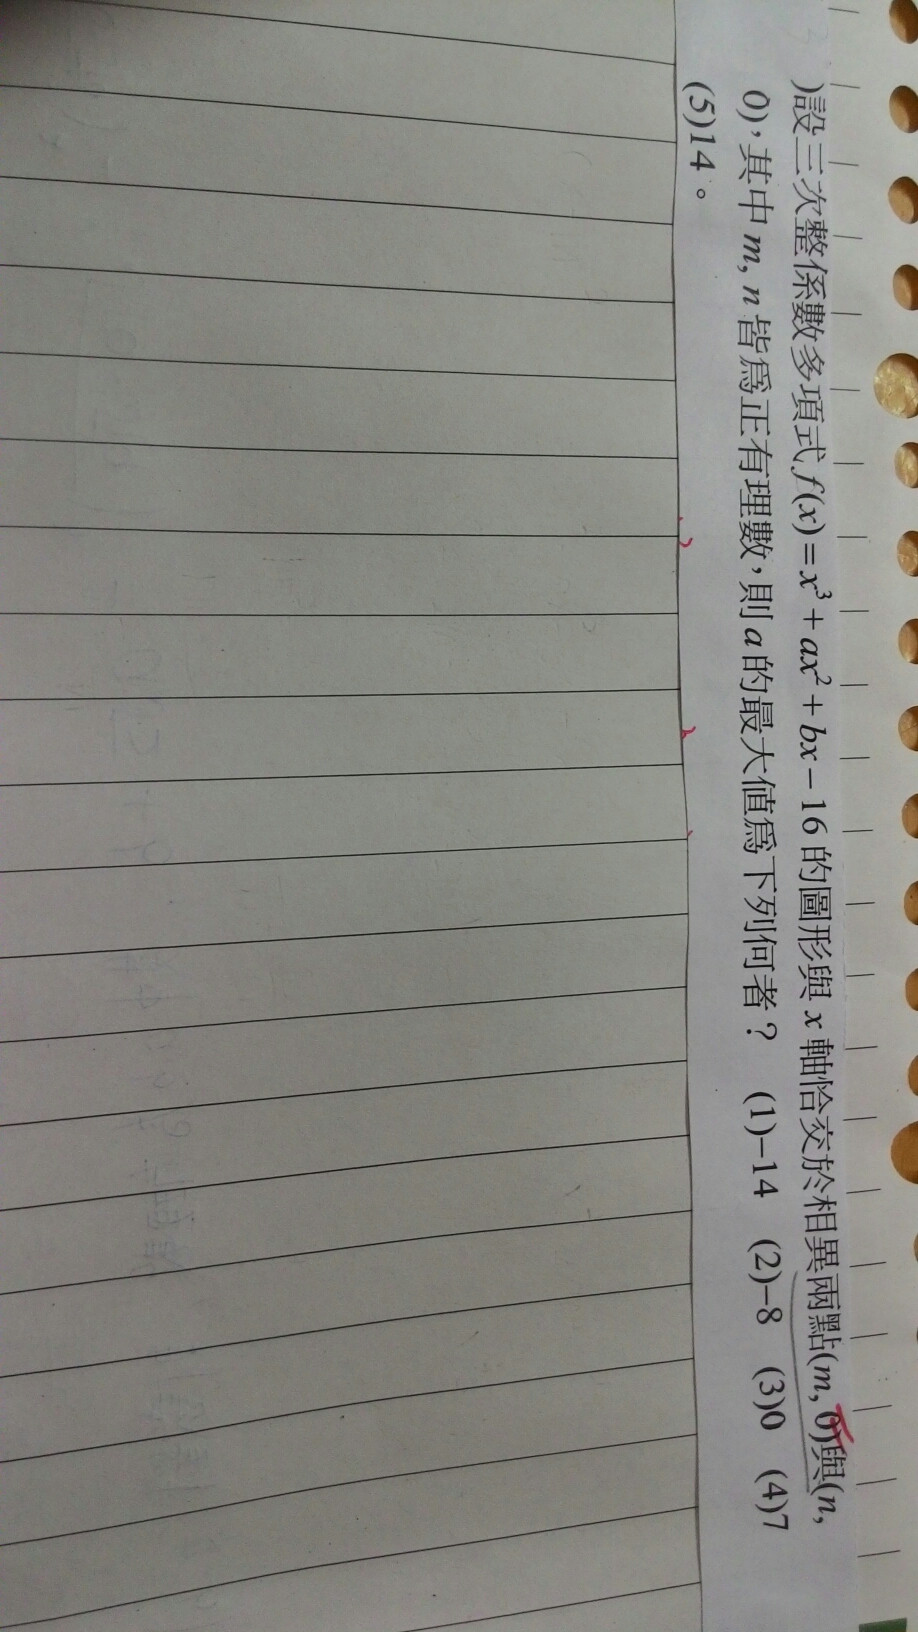 )設三次整係數多項式 f(x)=x³+ax²+bx−16 的圖形與 x 軸恰交於相異兩點(m, 0)與(n,
0),其中 m, n 皆為正有理數,則 a 的最大值為下列何者? (1)−14 (2)−8 (3)0 (4)7
(5)14。